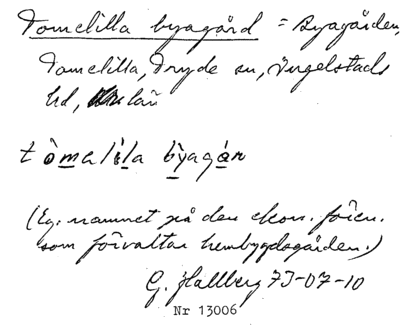 Tomelilla byagård = Byagården,
Tomelilla, Tryde sn, Ingelstads
hd, län
tòmalíla bỳagán
(Eg. namnet på den ekon. fören.
som förvaltar hembygdsgården.)
G. Hallberg 73-07-10
Nr 13006